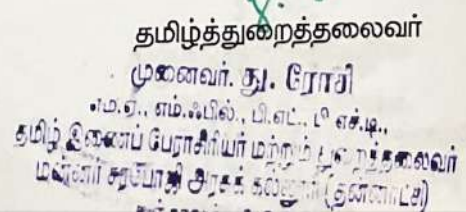 தமிழ்த்துறைத்தலைவர்
முனைவர். து. ரோசி
எம்.ஏ., எம்.ஃபில்., பி.எட்., பிஎச்.டி.,
தமிழ் இணைப் பேராசிரியர் மற்றும் துறைத்தலைவர்
மன்னர் சரபோஜி அரசுக் கல்லூரி (தன்னாட்சி)